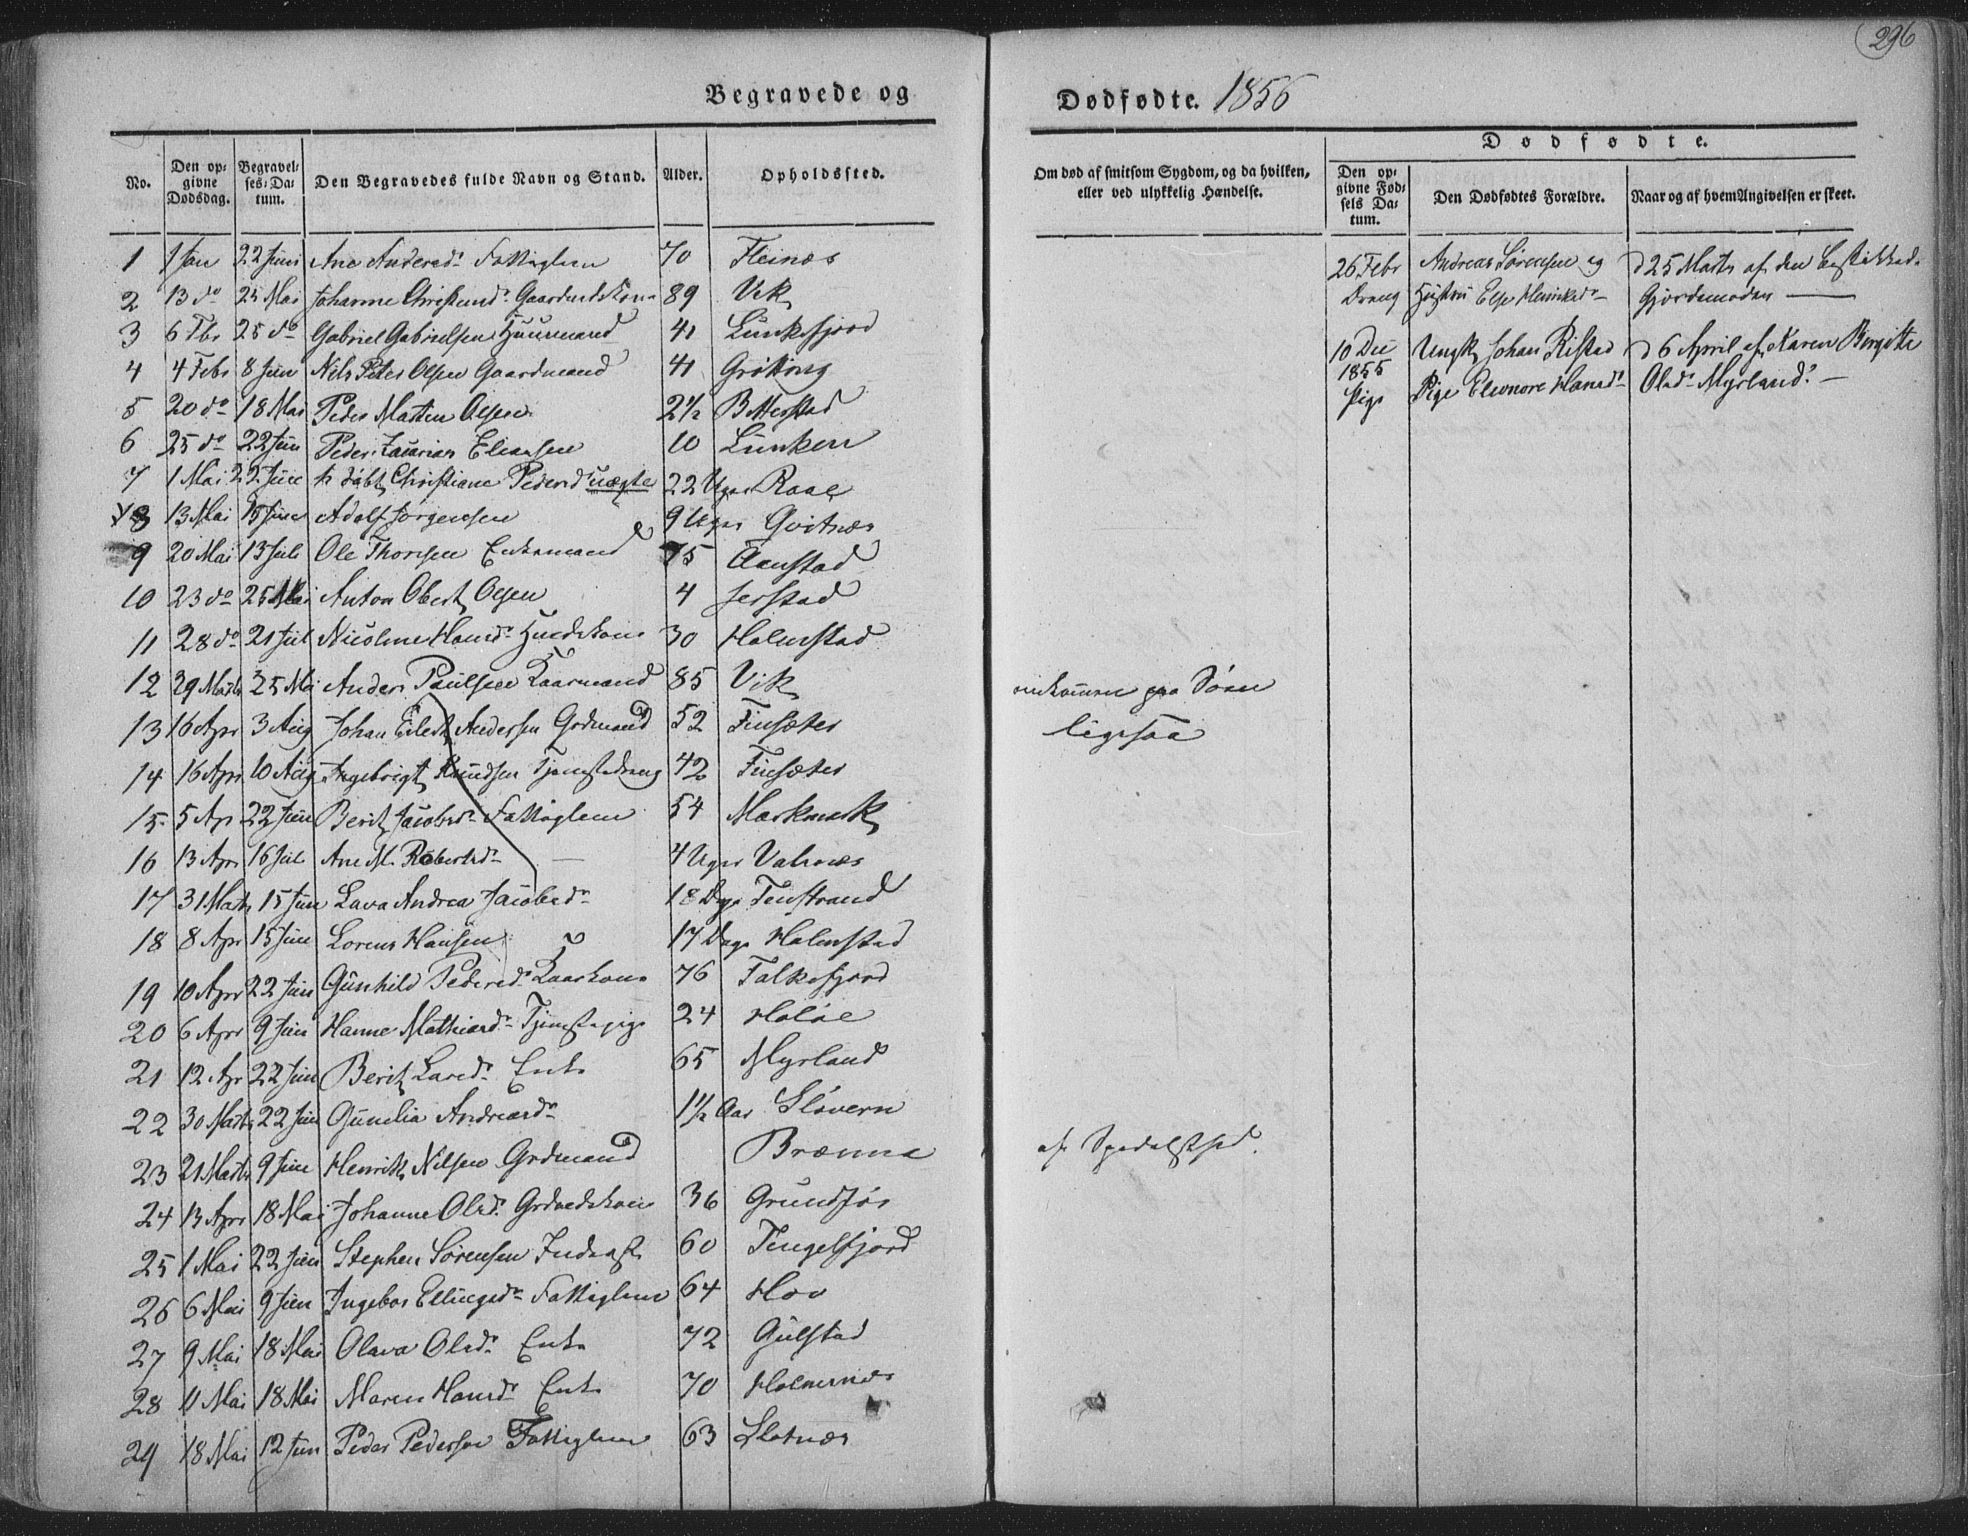 296
Begravede og
Dødfødte. 1856
No. Den opgivne Dødsdag. Begravelses-Datum. Den Begravedes fulde Navn og Stand. Alder. Opholdssted.
Om død af smitsom Sygdom, og da hvilken, eller ved ulykkelig Hændelse.
Dødfødte.
Den opgivne Fødsels Datum. Den Dødfødtes Forældre. Naar og af hvem Angivelsen er skeet.
1 1 Jan 22 Juni Ane Andersd. Fattiglem 70 Fleinæs
2 13 do 25 Mai Johanne Gaardmdskone 89 Vik
3 6 Fbr 25 do Gabriel Gabrielsen Huusmand 41 Lunkefjord
4 4 Febr 8 Jun Nils Peter Olsen Gaardmand 41
5 20 do 18 Mai Peder Martin Olsen 2 1/2 Bitterstad
6 25 do 22 Jun Peder Zacarias Eliassen 10 Lunken
7 1 Mai 22 Jun Christiane Pedersd uægte 22 Uger Raae
8 13 Mai 15 Jun Adolf Jørgensen 9 Uger Gvitnæs
9 20 Mai 13 Jul Ole Thorsen Enkemand 75 Aanstad
10 23 do 25 Mai Anton Obert Olsen 4 Jerstad
11 28 do 21 Jul Nicoline Hansd. 30 Holmstad
12 29 Marts 25 Mai Anders Paulsen Kaarmand 85 Vik
13 16 Apr 3 Aug Johan Eilert Andersen Grdmand 52 Finsæter omkommen paa Søen
14 16 Apr 10 Aug Ingebrigt Knudsen Tjenestedreng 42 Finsæter ligesaa
15 5 Ap 22 Jun Berit Jacobsd. Fattiglem 54 Markmark
16 13 Apr 16 Jul Ane M. Robertsd. — 4 Uger Valnæs
17 31 Marts 15 Jun Lava Andrea Jacobsd. 18 Dage Tenstrand
18 8 Apr 15 Jun Lorens Hansen 17 Dage Holmstad
19 10 Apr 22 Jun Gunhild Pedersd. Kaarkone 76 Falkefjord
20 6 Apr 9 Jun Hanne Mathiasd. Tjenestepige 24 Haløe
21 12 Apr 22 Jun Berit Larsd. Enke 65 Myrland
22 30 Marts 22 Jun Gunelia Andreasd. 1 1/2 Aar Sløvern
23 21 Marts 9 Jun Henrik Nilsen Grdmand Brænna af Spedalskhed.
24 13 Apr 18 Mai Johanne Olsd. Grdmdskone 36 Grundfør
25 1 Mai 22 Jun Stephen Sørensen Inderst 60 Tengelfjord
26 6 Mai 9 Jun Ingebor Ellingsd. Fattiglem 64 Hov
27 9 Mai 18 Mai Olava Olsd. Enke 72 Gulstad
28 11 Mai 18 Mai Maren Hansd. Enke 70 Holmenæs
29 18 Mai 12 Jun Peder Pedersen Fattiglem 63 Slotnæs
26 Febr Andreas Sørensen og d 25 Marts af den beskikkede
Dreng Hustru Else Gjordemoder —
10 Dec Ungk. Johan Ristad d 6 April af Karen Bergitte
1855
Pige Pige Eleonore Hansd. Olsd. Myrland. —